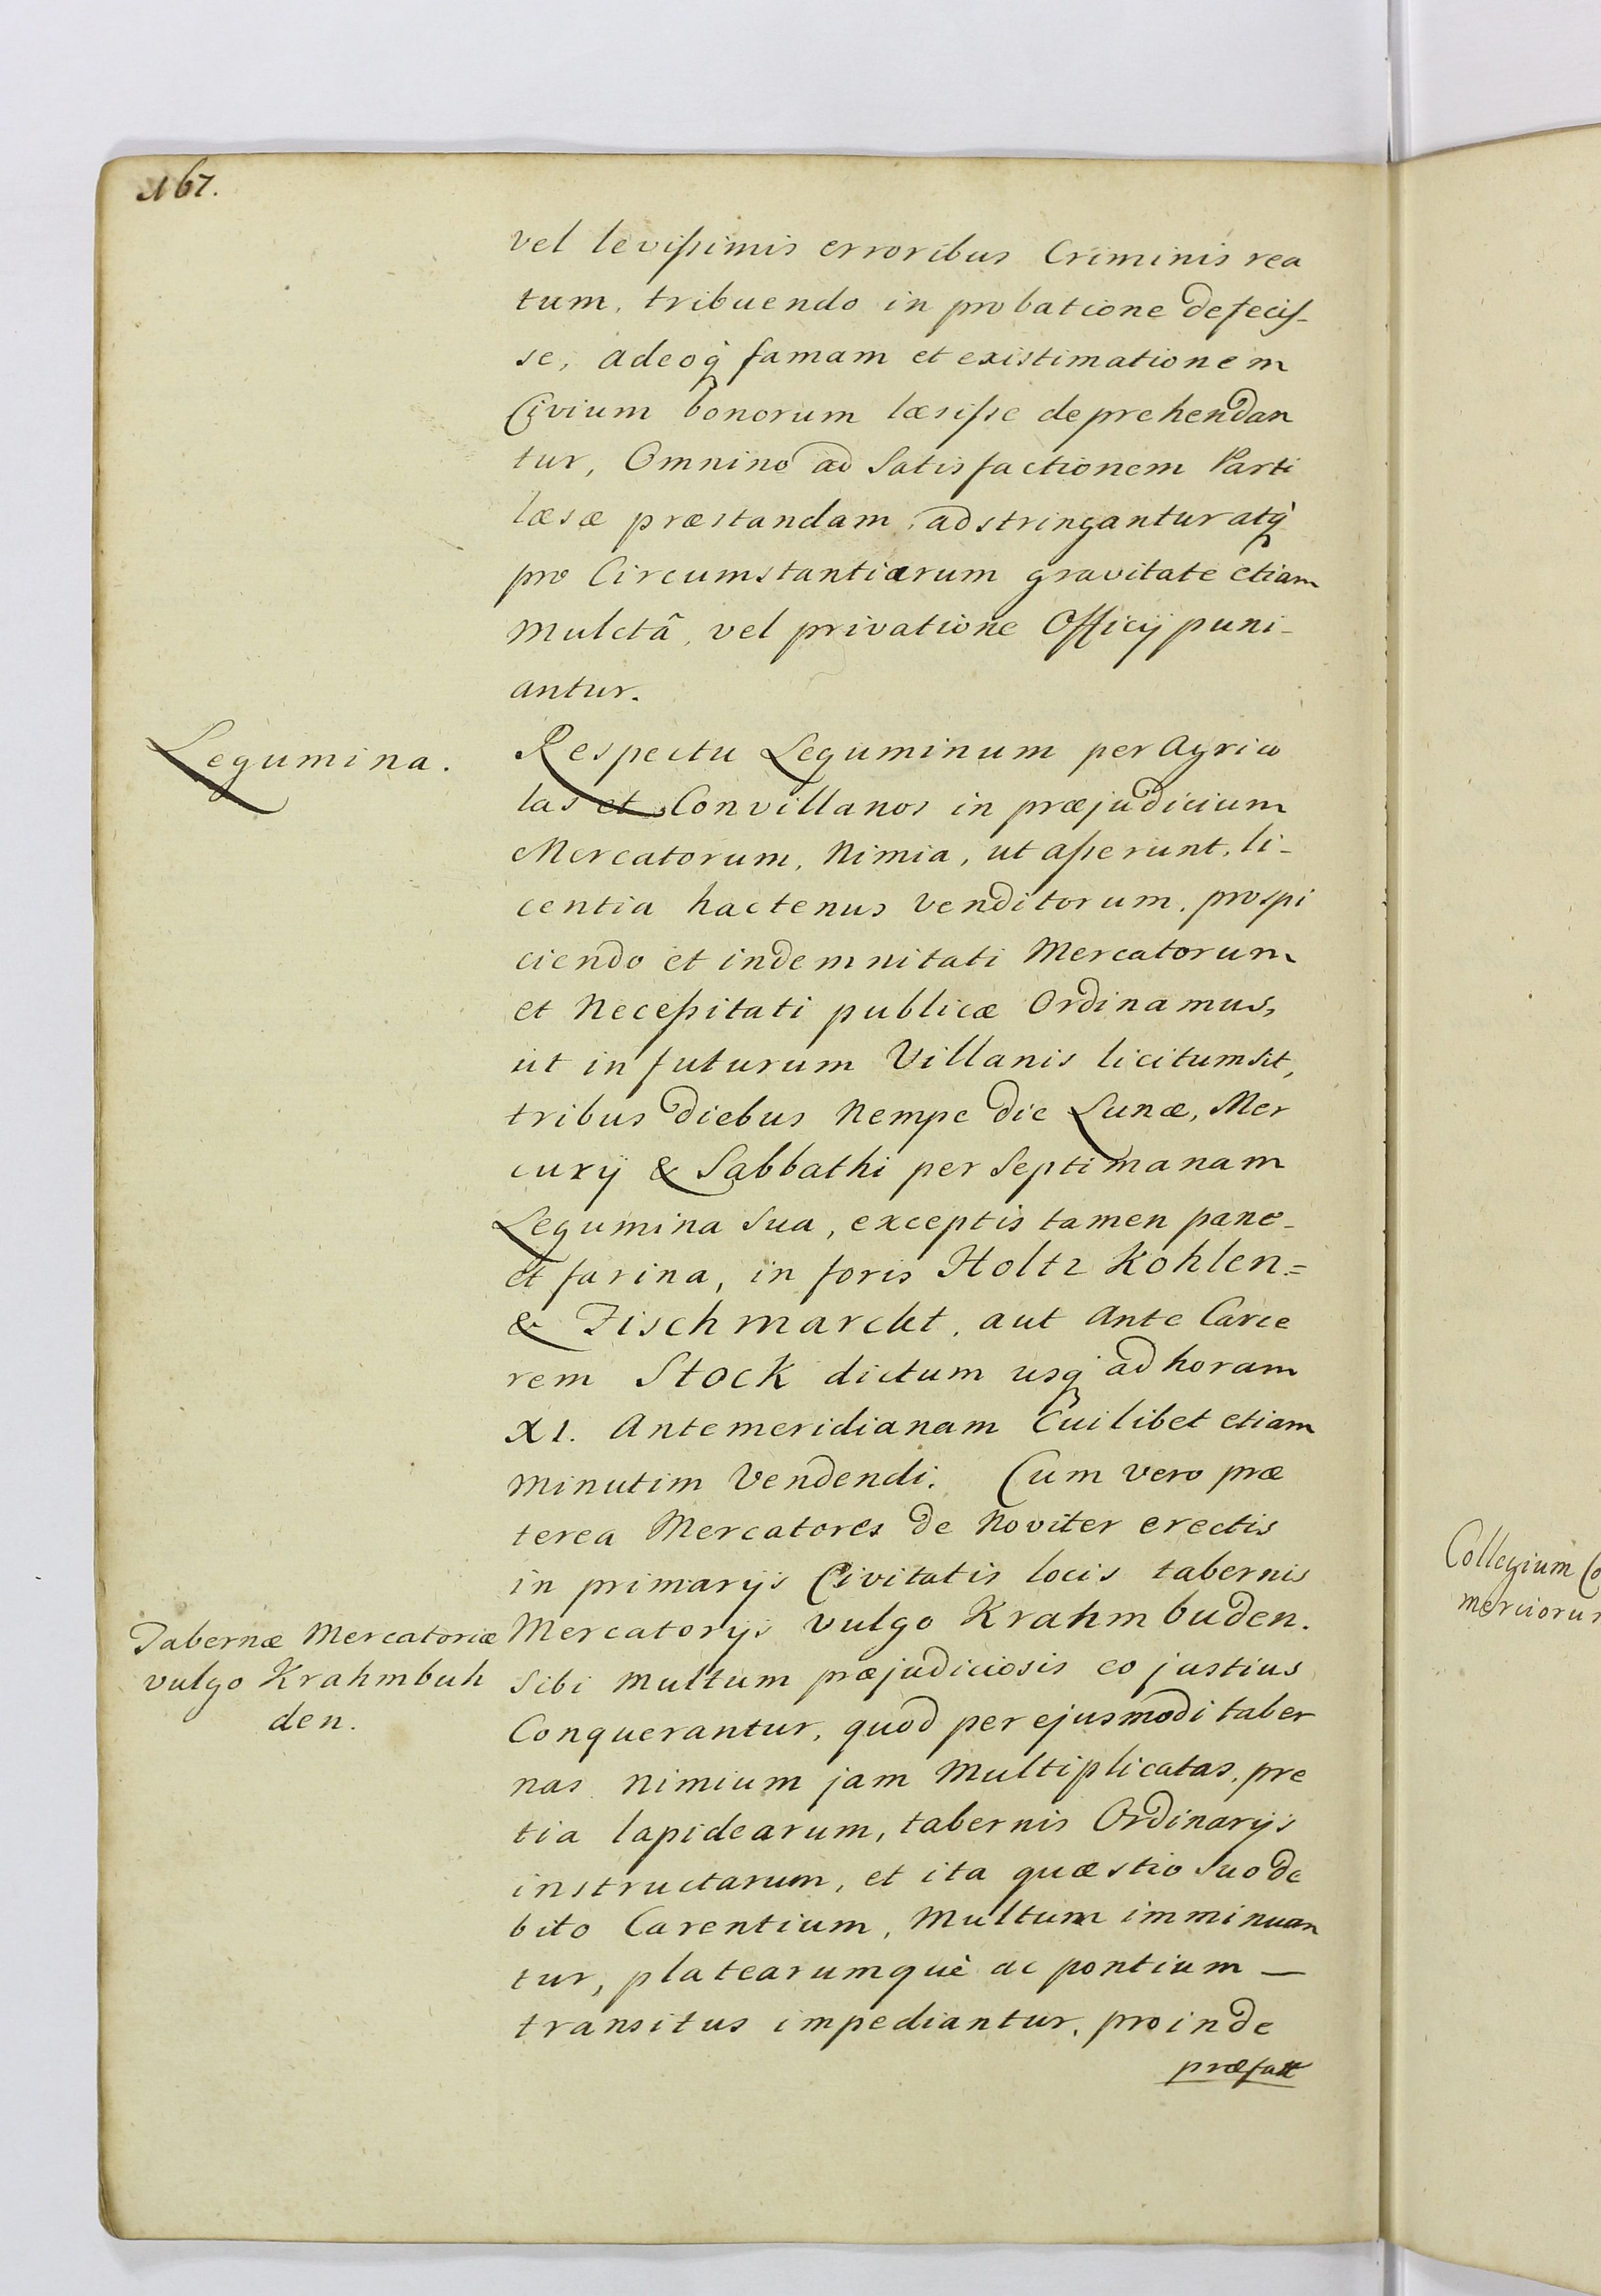 167.
vel levissimis erroribus Criminis rea
tum, tribuendo in probatione defecis-
se, adeoq́ famam et existimationem
Civium bonorum læsisse deprehendan
tur, Omnino ad Satisfactionem Parti
læsæ præstandam, adstringantur atq́
pro Circumstantiarum gravitate etiam
Mulctâ, vel privatione Officij puni-
antur.
Legumina.
Respectu Leguminum per Agrico
las et Convillanos in præjudicium
Mercatorum, Nimia, ut asserunt, li-
centia hactenus Venditorum, prospi
ciendo et indemnitati Mercatorum
et Necessitati publicæ Ordinamus,
ut in futurum Villanis licitum sit,
tribus diebus Nempe die Lunæ, Mer
curij & Sabbathi per Septimanam
Legumina Sua, exceptis tamen pane-
et farina, in foris Holtz Kohlen=
& Fischmarckt, aut Ante Carce
rem Stock dictum usq́ ad horam
XI. Antemeridianam Cuilibet etiam
Minutim Vendendi. Cum vero præ
terea Mercatores de Noviter erectis
in primarijs Civitatis locis tabernis
Tabernæ Mercatoriæ
vulgo Krahmbuh
den.
Mercatorijs vulgo Krahmbuden.
Sibi Multum præjudiciosis eo justius
Conquerantur, quod per ejusmodi taber
nas nimium jam Multiplicatas, pre
tia lapidearum, tabernis Ordinarijs
instructarum, et ita quæstio Suo de
bito Carentium, Multum imminuan
tur, platearumquè ac pontium —
transitus impediantur, proinde
præfatt
Collegium Co
merciorum